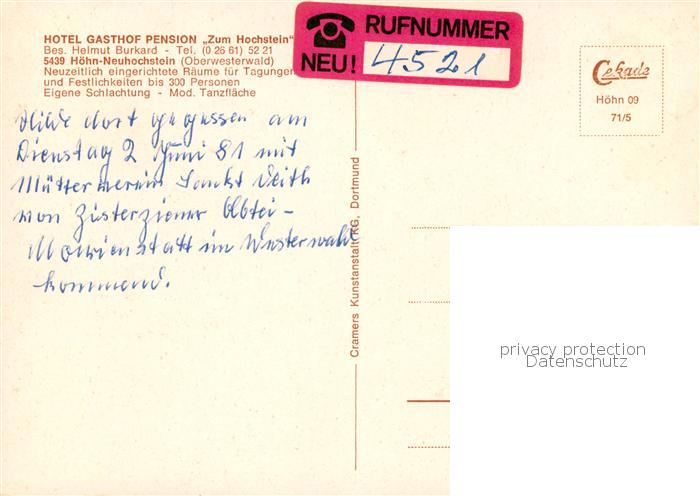 HOTEL GASTHOF PENSION „Zum Hochstein“
Bes. Helmut Burkard - Tel. (0 26 61) 52 21
5439 Höhn-Neuhochstein (Oberwesterwald)
Neuzeitlich eingerichtete Räume für Tagungen
und Festlichkeiten bis 300 Personen
Eigene Schlachtung - Mod. Tanzfläche
RUFNUMMER
NEU! 4521
Cekade
Höhn 09
71/5
dort gegessen am
Dienstag 2 Juni 81 mit
Mütterverein Sankt Veith
von Zisterzienser Abtei-
Marienstatt im Westerwald
kommend.
Cramers Kunstanstalt KG, Dortmund
privacy protection
Datenschutz